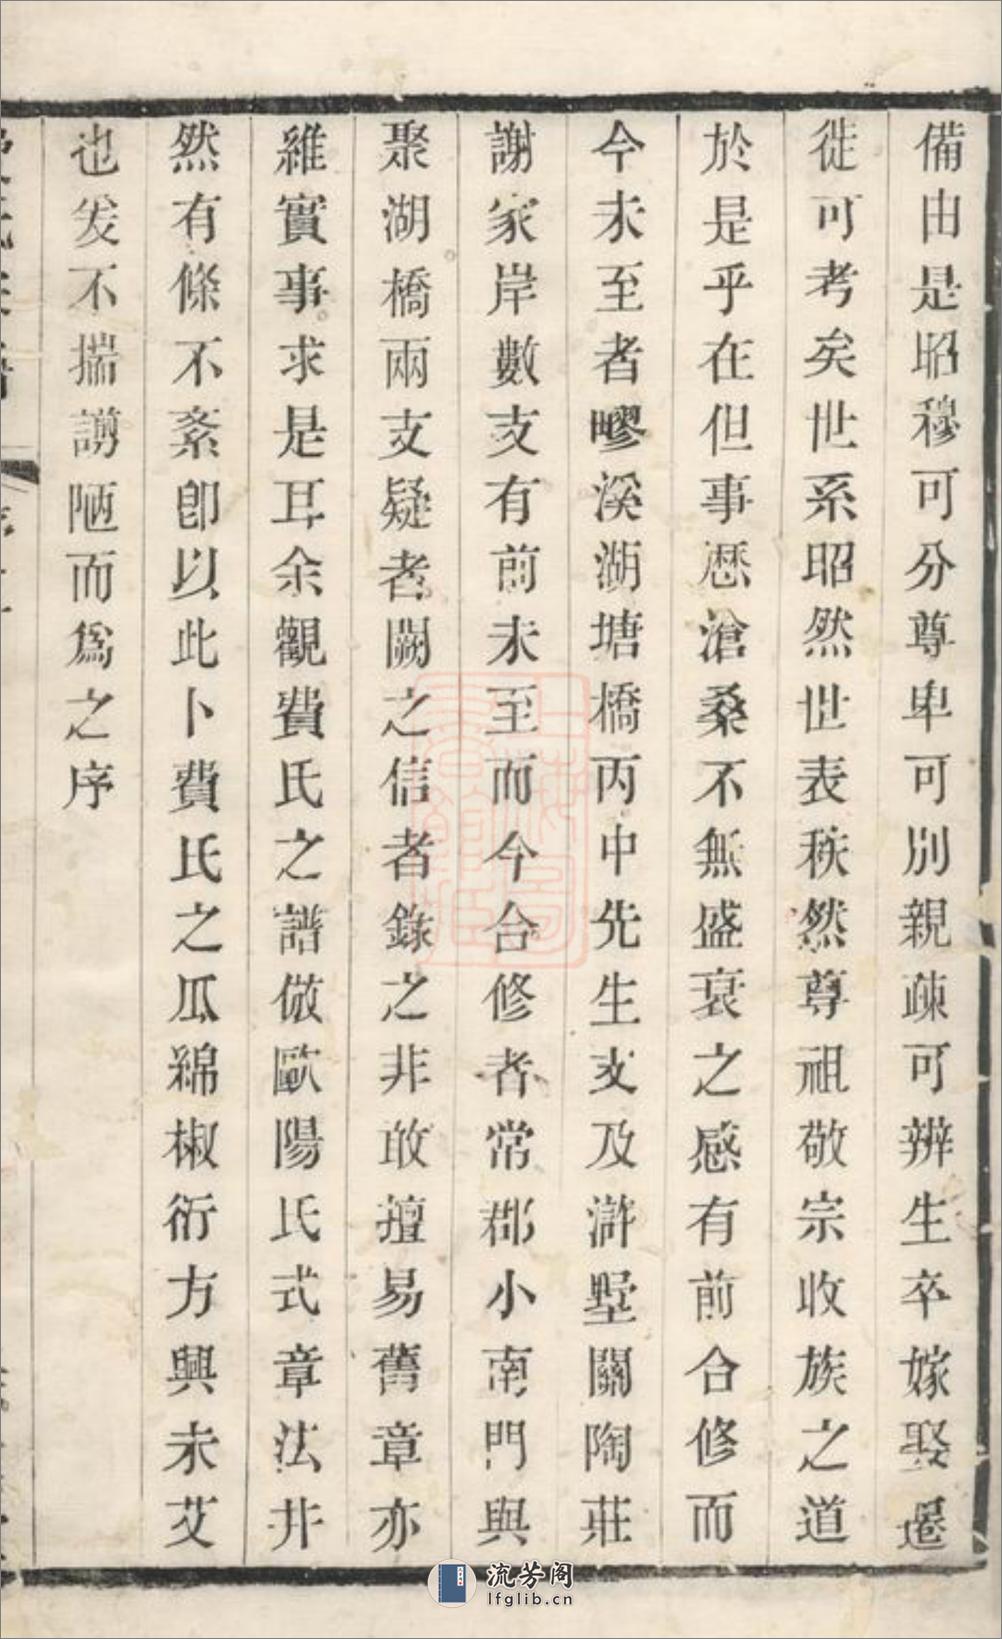 備由是昭穆可分尊卑可別親疎可辨生卒嫁娶遷
徙可考矣世系昭然世表秩然尊祖敬宗收族之道
於是乎在但事歷滄桑不無盛衰之感有前合修而
今未至者疁溪湖塘橋丙中先生支及滸墅關陶莊
謝家岸數支有前未至而今合修者常郡小南門與
聚湖橋兩支疑者闕之信者錄之非敢擅易舊章亦
維實事求是耳余觀費氏之譜倣歐陽氏式章法井
然有條不紊卽以此卜費氏之瓜綿椒衍方興未艾
也爰不揣譾陋而爲之序
流芳阁
lfglib.cn